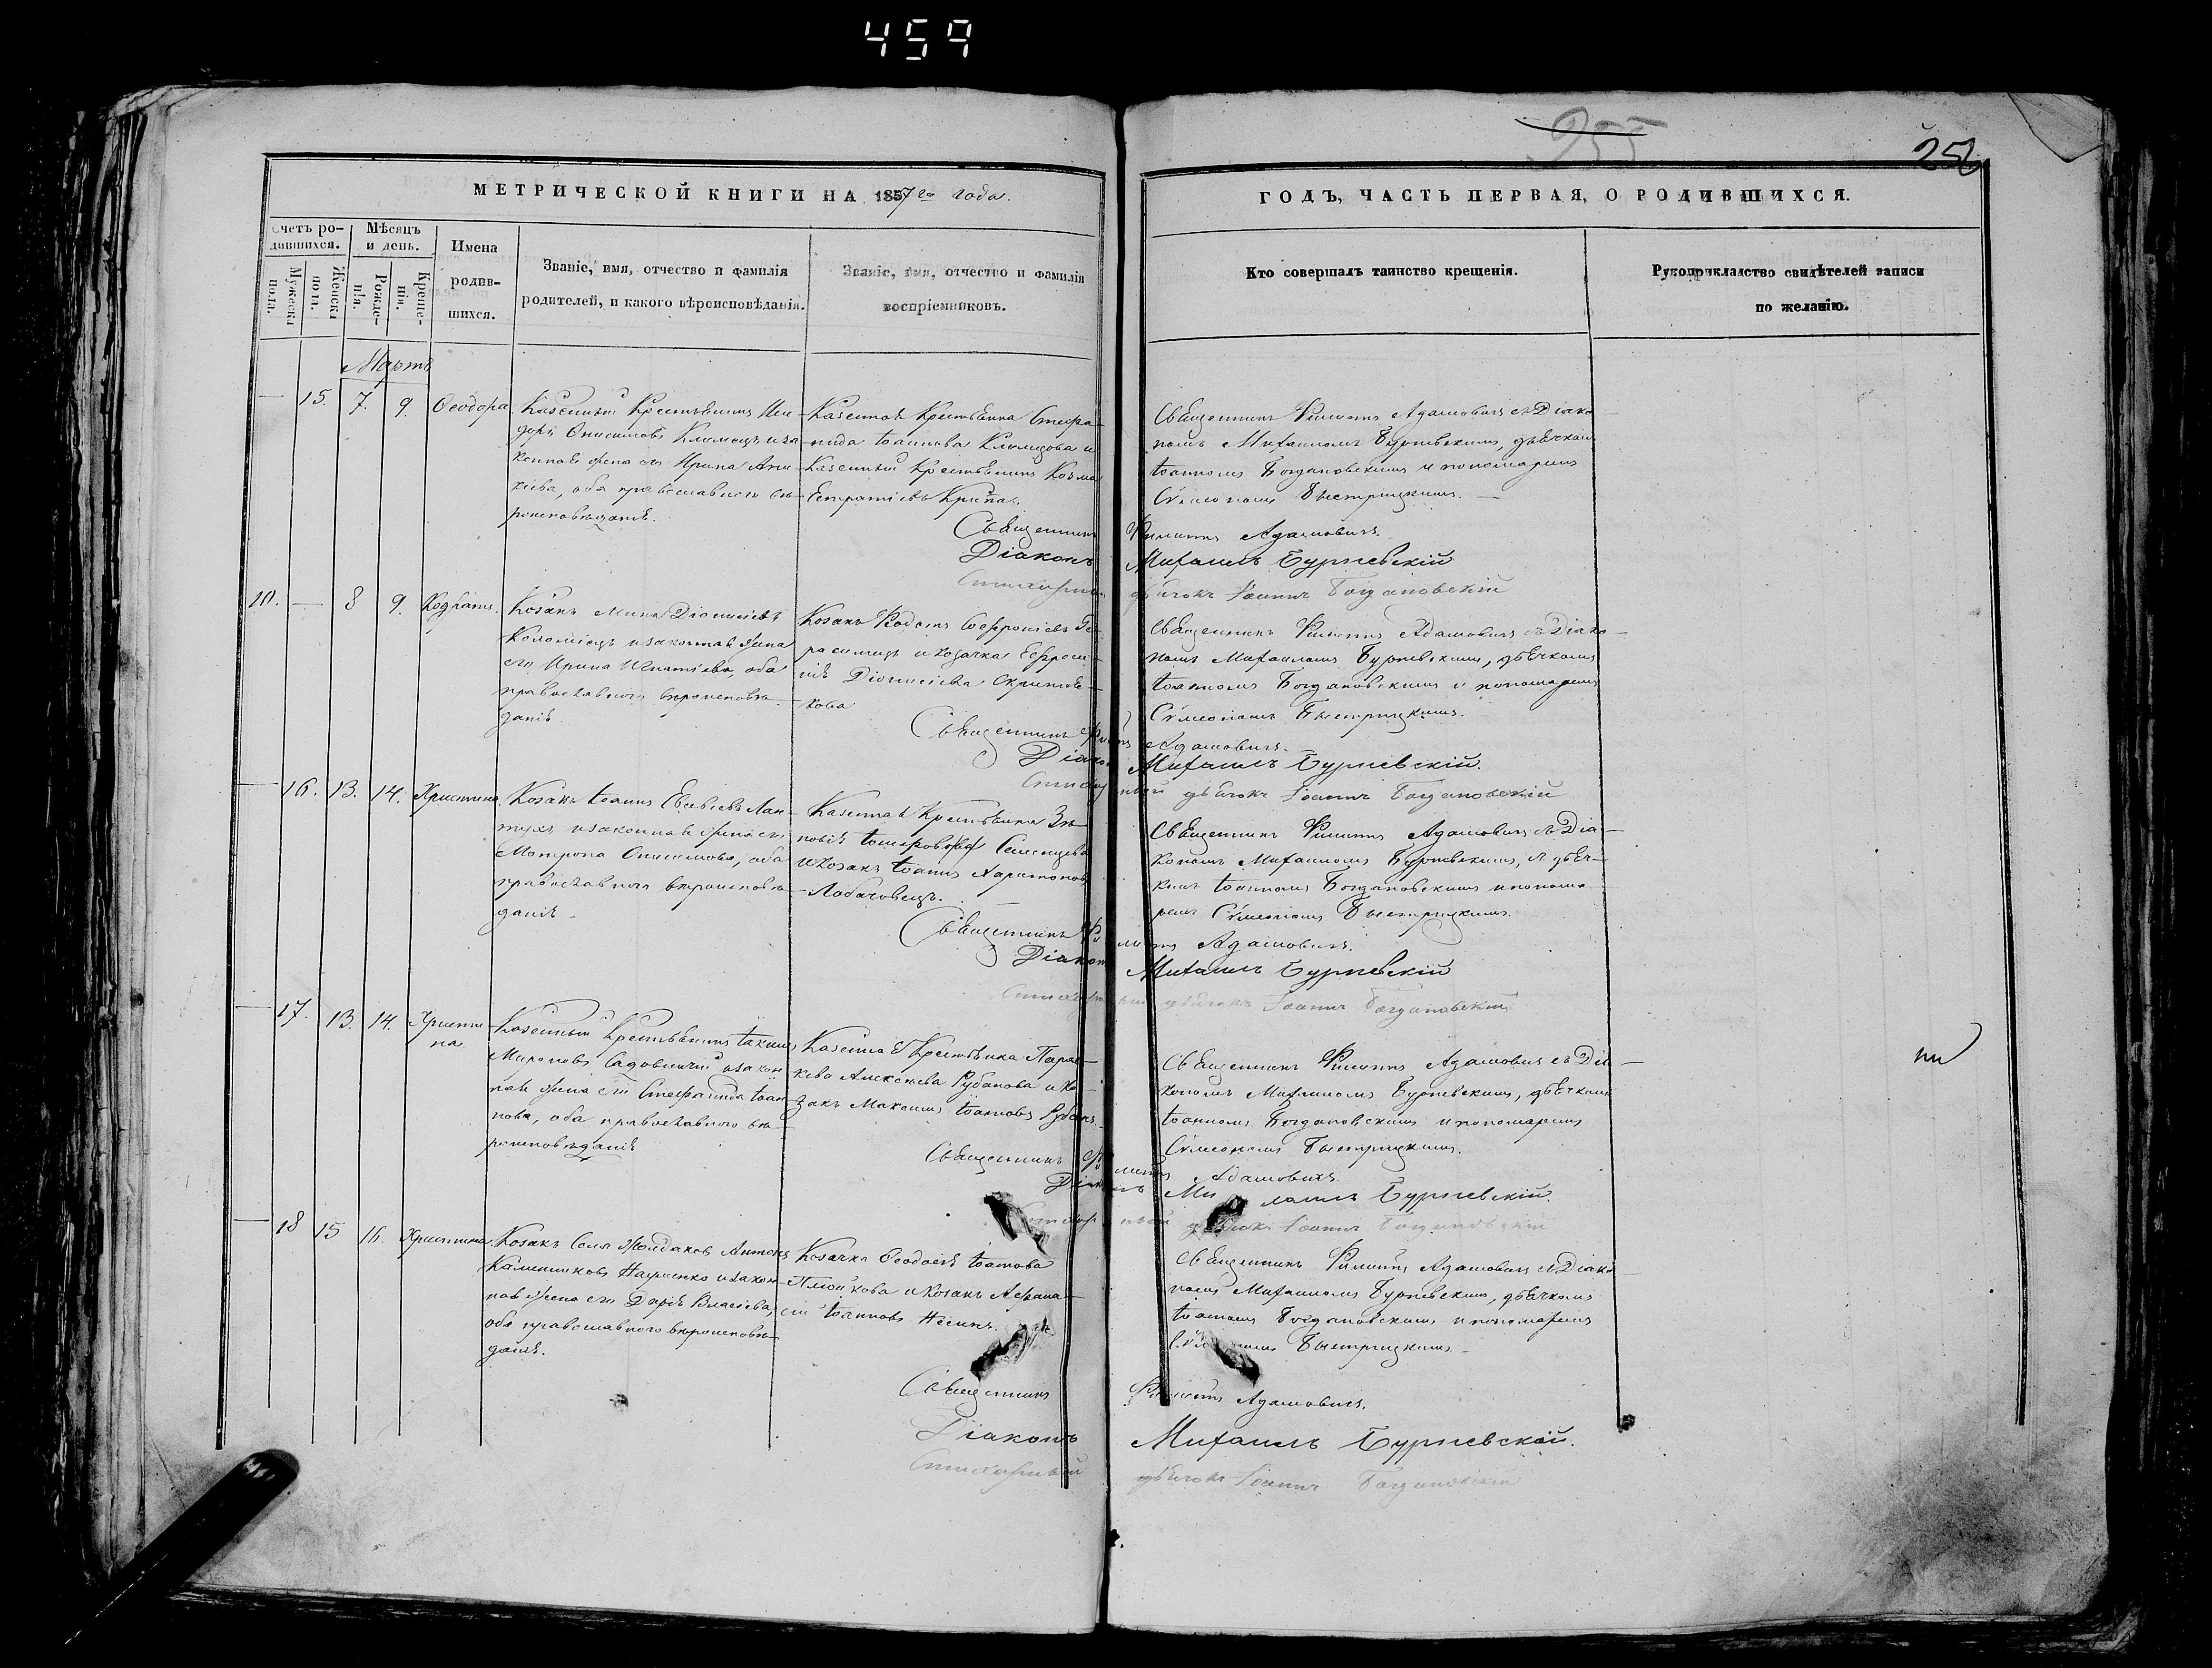 459
255
256
МЕТРИЧЕСКОЙ КНИГИ НА 1857го года.
ГОДЪ, ЧАСТЬ ПЕРВАЯ, О РОДИВШИХСЯ.
Счетъ родившихся.
Мужеска пола.
Женска пола.
Мѣсяцъ и день.
Рожденія.
Крещенія.
Имена родившихся.
Званіе, имя, отчество и фамилія
родителей, и какого вѣроисповѣданія.
Званіе, имя, отчество и фамилія
воспріемниковъ.
Кто совершалъ таинство крещенія.
Рукоприкладство свидѣтелей записи
по желанію.
Мартъ
— 15. 7. 9. Ѳеодора.
Казенный Крестьянинъ
Онисимовъ Климецъ и за-
конная жена его Ирина
оба православнаго вѣ-
роисповѣданія.
Казенная Крестьянка Стефа-
нида Іоаннова Климцова и
Казенный Крестьянинъ Козма
Священникъ Филиппъ Адамовичъ съ Діако-
номъ Михаиломъ Бурневскимъ, дьячкомъ
Іоанномъ Богдановскимъ и пономаремъ
Сѵмеономъ Быстрицкимъ. —
Священникъ Филиппъ Адамовичъ
Діаконъ Михаилъ Бурневскій
Стихарный дьячокъ Іоаннъ Богдановскій
10. — 8 9. Кодратъ.
Козакъ Мина Діонисіевъ
Коломіецъ и законная жена
его Ирина Игнатіева, оба
православнаго вѣроисповѣ-
данія.
Козакъ Софроніевъ Ге-
расимецъ и козачка Евфроси-
нія Діонисіева
Священникъ Филиппъ Адамовичъ съ Діако-
номъ Михаиломъ Бурневскимъ, дьячкомъ
Іоанномъ Богдановскимъ и пономаремъ
Сѵмеономъ Быстрицкимъ.
Священникъ Филиппъ Адамовичъ.
Діаконъ Михаилъ Бурневскій.
Стихарный дьячокъ Іоаннъ Богдановскій
— 16. 13. 14. Христина.
Козакъ Іоаннъ Лан-
тухъ и законная жена его
Матрона Онисимова, оба
православнаго вѣроисповѣ-
данія
Казенная Крестьянка Зи-
новія Семенцева
и козакъ Іоаннъ Харитоновъ
Священникъ Филиппъ Адамовичъ съ Діа-
кономъ Михаиломъ Бурневскимъ, дьяч-
комъ Іоанномъ Богдановскимъ и понома-
ремъ Сѵмеономъ Быстрицкимъ.
Священникъ Филиппъ Адамовичъ.
Діаконъ Михаилъ Бурневскій
Стихарный дьячокъ Іоаннъ Богдановскій
— 17. 13. 14. Христи-
на.
Казенный Крестьянинъ Іакимъ
Мироновъ Садовничій и закон-
ная жена его Стефанида Іоан-
нова, оба православнаго вѣ-
роисповѣданія
Казенная Крестьянка Парас-
кева Алексѣева Рубанова и ко-
закъ Максимъ Іоанновъ Рубанъ.
Священникъ Филиппъ Адамовичъ съ Діа-
кономъ Михаиломъ Бурневскимъ, дьячкомъ
Іоанномъ Богдановскимъ и пономаремъ
Сѵмеономъ Быстрицкимъ.
Священникъ Филиппъ Адамовичъ
Діаконъ Михаилъ Бурневскій.
Стихарный дьячокъ Іоаннъ Богдановскій
— 18 15 16. Христина.
Козакъ Села Жолдаковъ Антонъ
и закон-
ная жена его Дарія Власіева,
оба православнаго вѣроисповѣ-
данія.
Козачка Ѳеодосія Іоаннова
и козакъ Афана-
сій Іоанновъ
Священникъ Филиппъ Адамовичъ съ Діако-
номъ Михаиломъ Бурневскимъ, дьячкомъ
Іоанномъ Богдановскимъ и пономаремъ
Быстрицкимъ.
Священникъ Филиппъ Адамовичъ.
Діаконъ Михаилъ Бурневскій.
Стихарный дьячокъ Іоаннъ Богдановскій